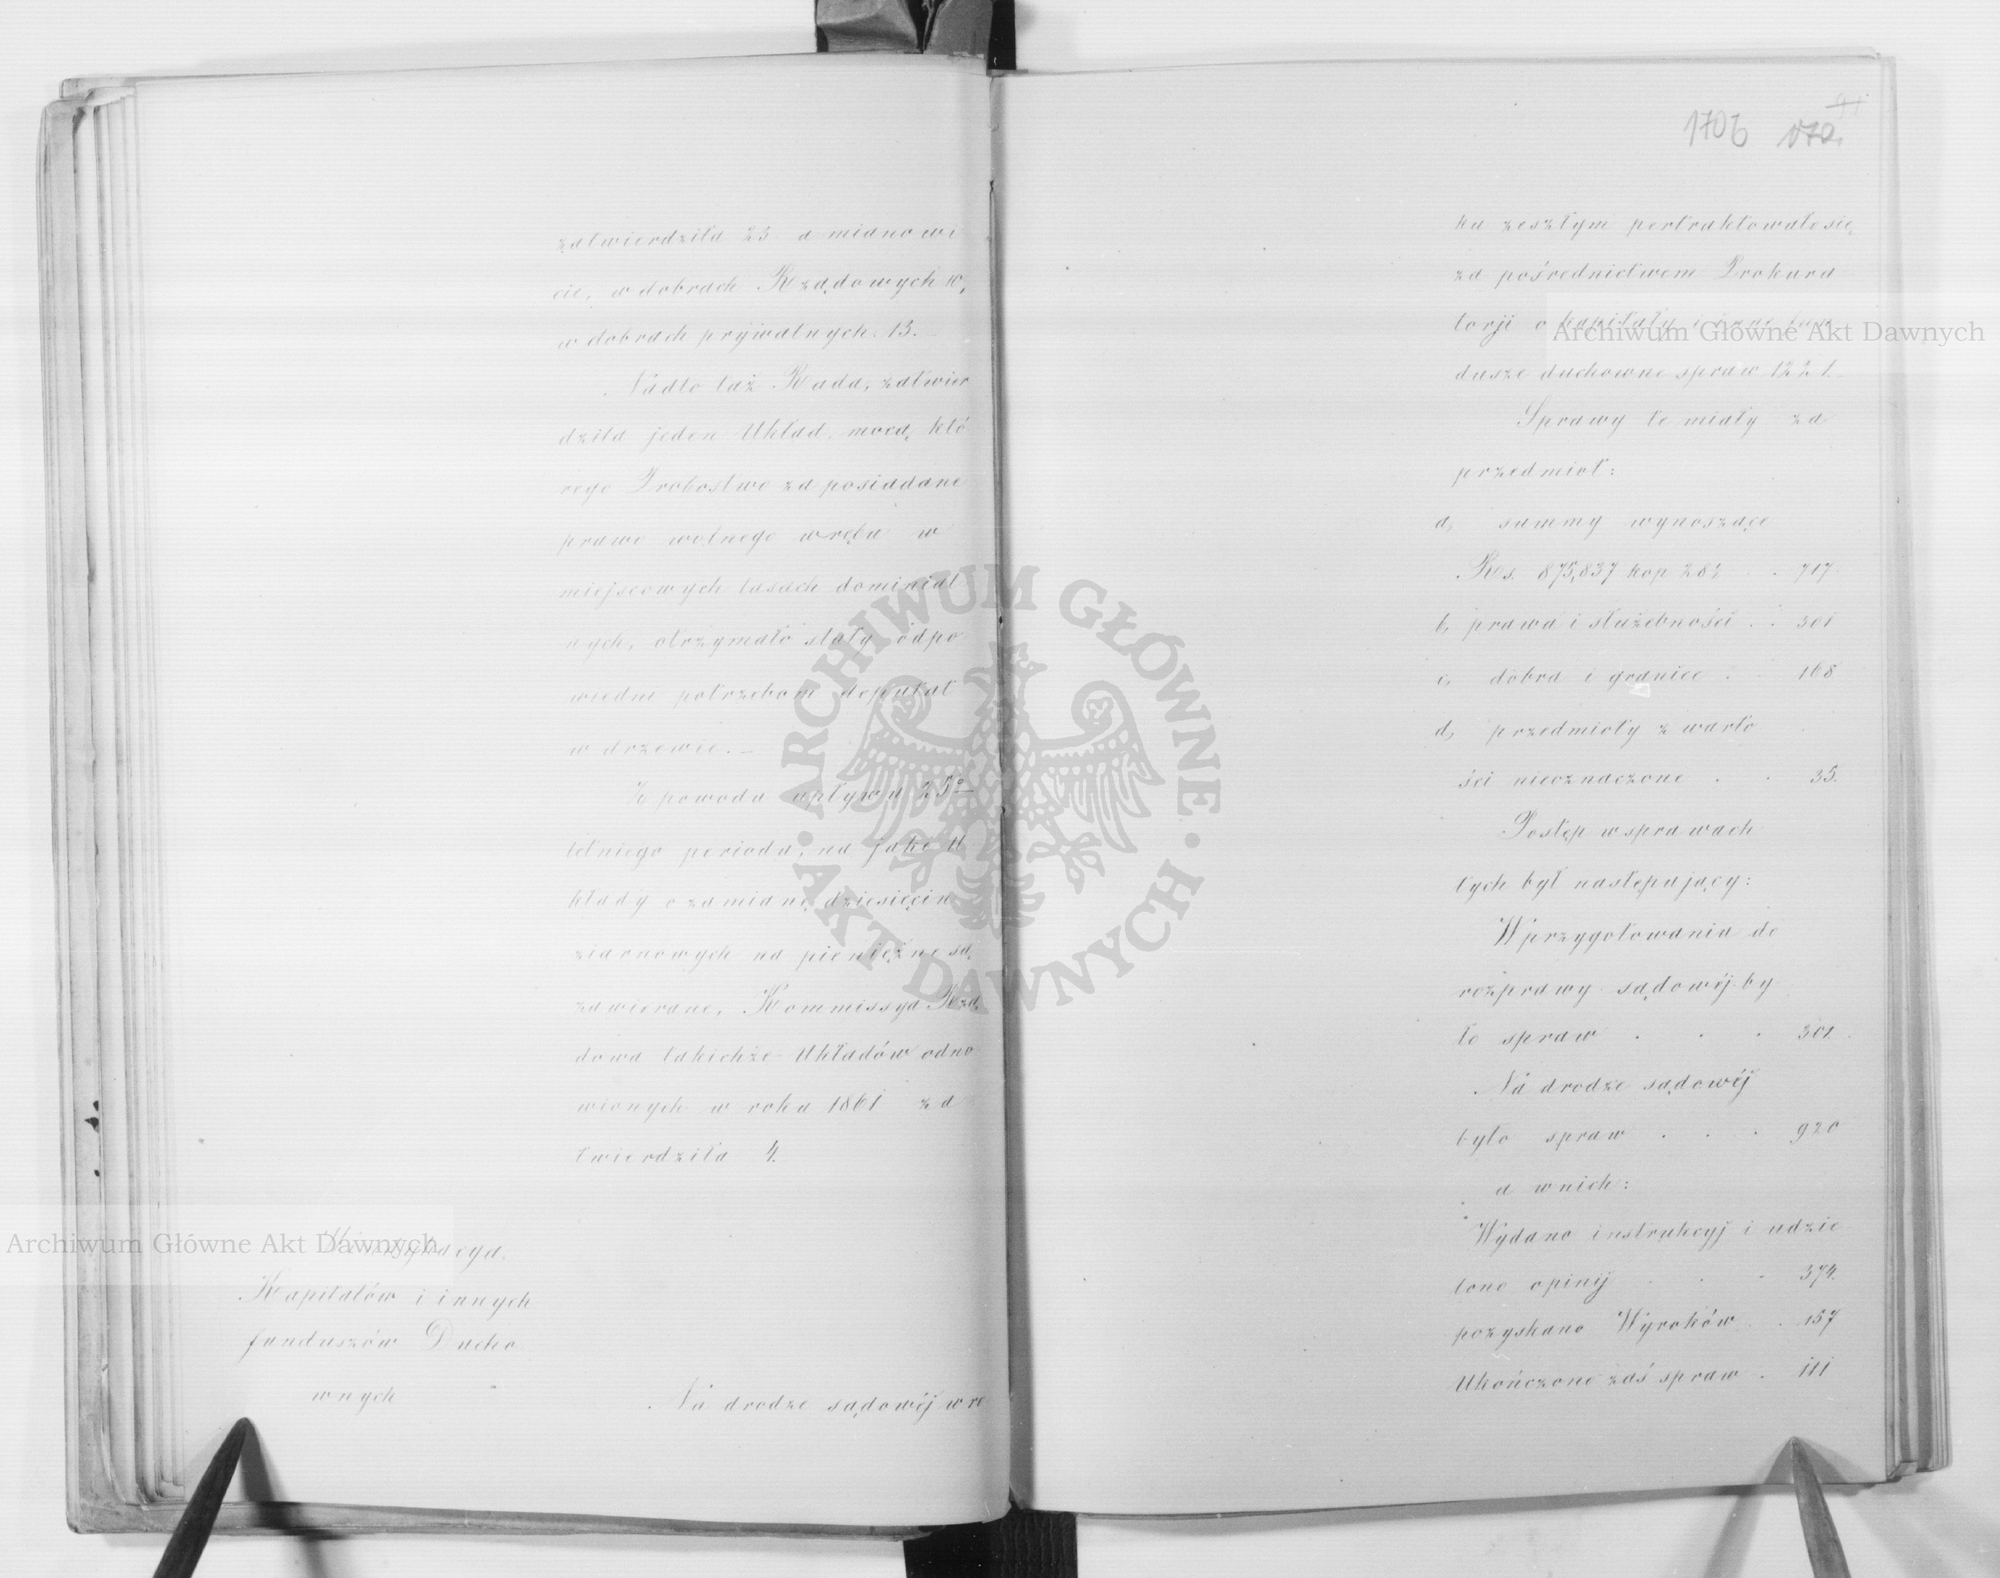 zatwierdziła 23. a mianowi
cie, w dobrach Rządowych 10,
w dobrach prywatnych 13.
Nadto taż Rada, zatwier
dziła jeden Układ, mocą któ
rego Probostwo za posiadane
prawo wolnego wrębu w
miejscowych lasach dominial
nych, otrzymało stały odpo
wiedni potrzebom deputat
w drzewie. —
Z powodu upływu 25o
letniego periodu, na jaki U
kłady o zamianę dziesięcin
ziarnowych na pieniężne są
zawierane, Kommissya Rzą
dowa takichże Układów odno
wionych w roku 1861 za
twierdziła 4.
Kapitałów i innych
funduszów Ducho
wnych
Na drodze sądowéj w ro
1706 170.
ku zeszłym pertraktowało się
za pośrednictwem Prokura
torji o kapitały i inne fun
dusze duchowne spraw 1221.
Sprawy te miały za
przedmiot:
a, summy wynoszące
Rs. 875,837 kop 28½ . . 717.
b, prawa i służebności . . 301
c, dobra i granice . . 168
d, przedmioty z warto
ści nieoznaczone . . 35.
Postęp w sprawach
tych był następujący:
W przygotowaniu do
rozprawy sądowéj by
ło spraw . . . 301.
Na drodze sądowéj
było spraw . . . 920
a w nich:
Wydano instrukcyj i udzie
lono opinij . . . 374.
pozyskano Wyroków . . 157
Ukończono zaś spraw . 111
Archiwum Główne Akt Dawnych
Archiwum Główne Akt Dawnych
ARCHIWUM GŁÓWNE
AKT DAWNYCH